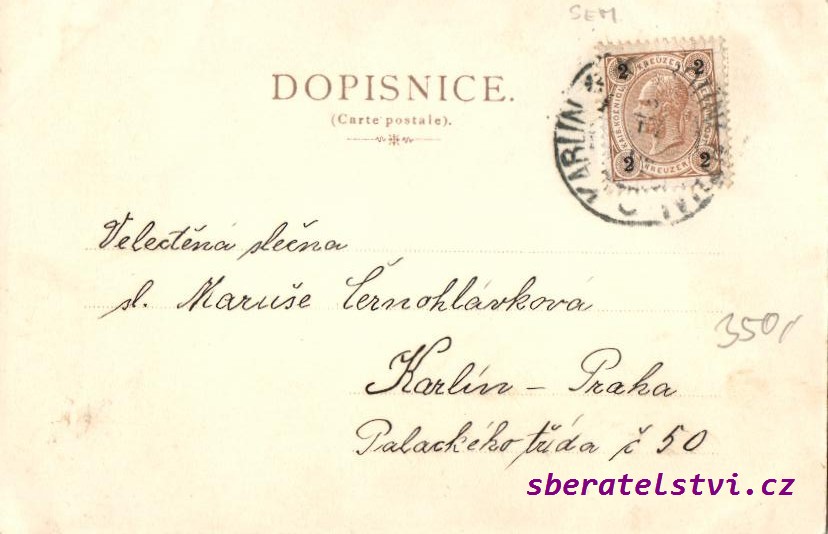 SEM.
DOPISNICE.
(Carte postale).
2 KREUZER 2
2 KREUZER 2
KARLÍN
Velectěná slečna
sl. Maruše Černohlávková
350,
Karlín – Praha
Palackého třída č 50
sberatelstvi.cz